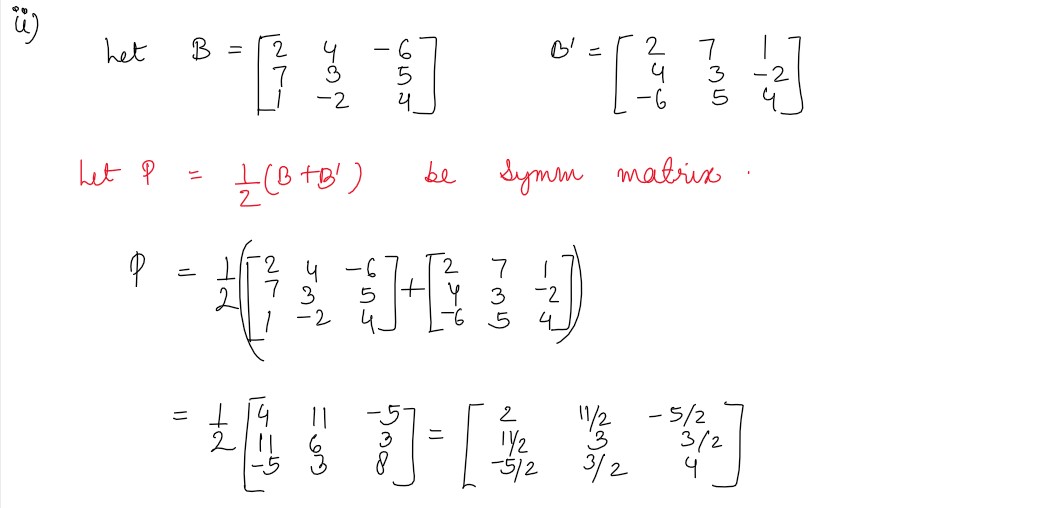 ii)
Let B = [2 4 -6; 7 3 5; 1 -2 4] B' = [2 7 1; 4 3 -2; -6 5 4]
Let P = 1/2 (B + B') be Symm matrix.
P = 1/2 ([2 4 -6; 7 3 5; 1 -2 4] + [2 7 1; 4 3 -2; -6 5 4])
= 1/2 [4 11 -5; 11 6 3; -5 3 8] = [2 11/2 -5/2; 11/2 3 3/2; -5/2 3/2 4]